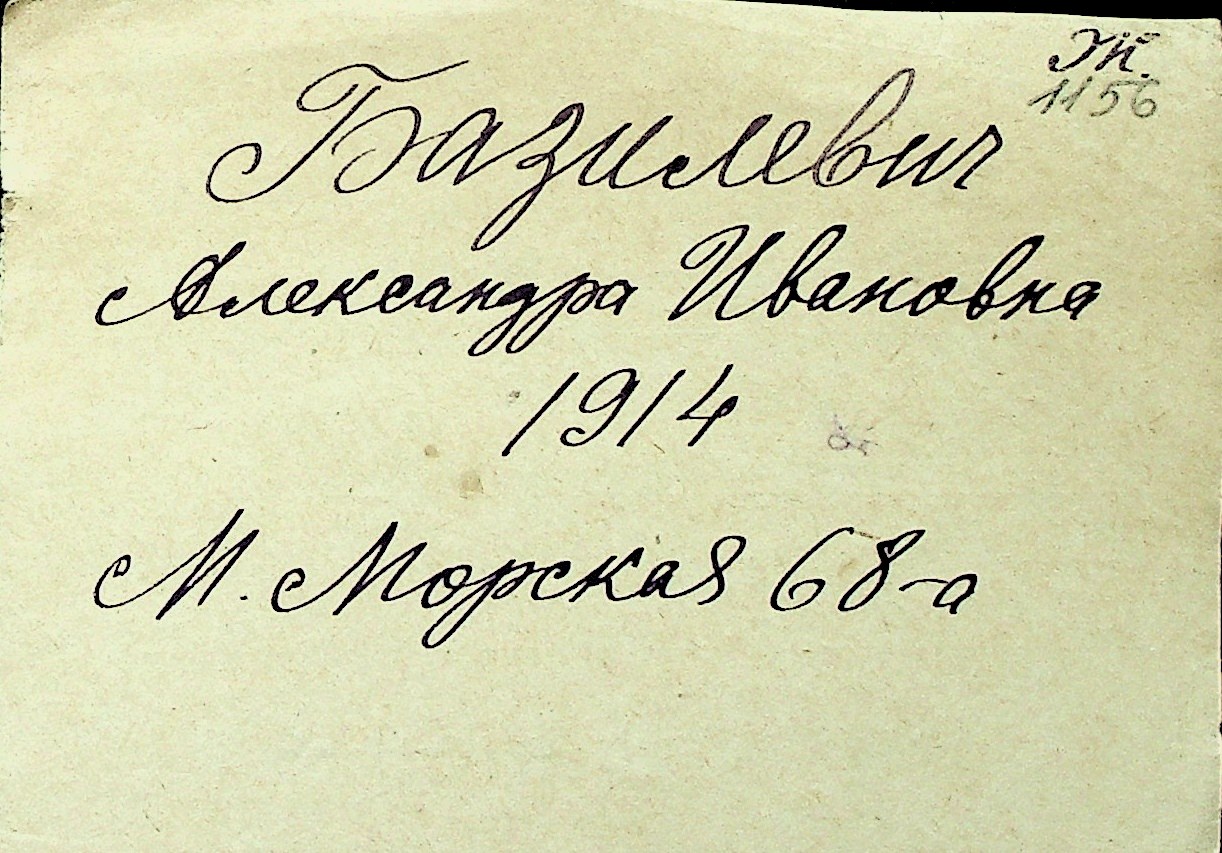 1156
Базилевич
Александра Ивановна
1914
М. Морская 68-а